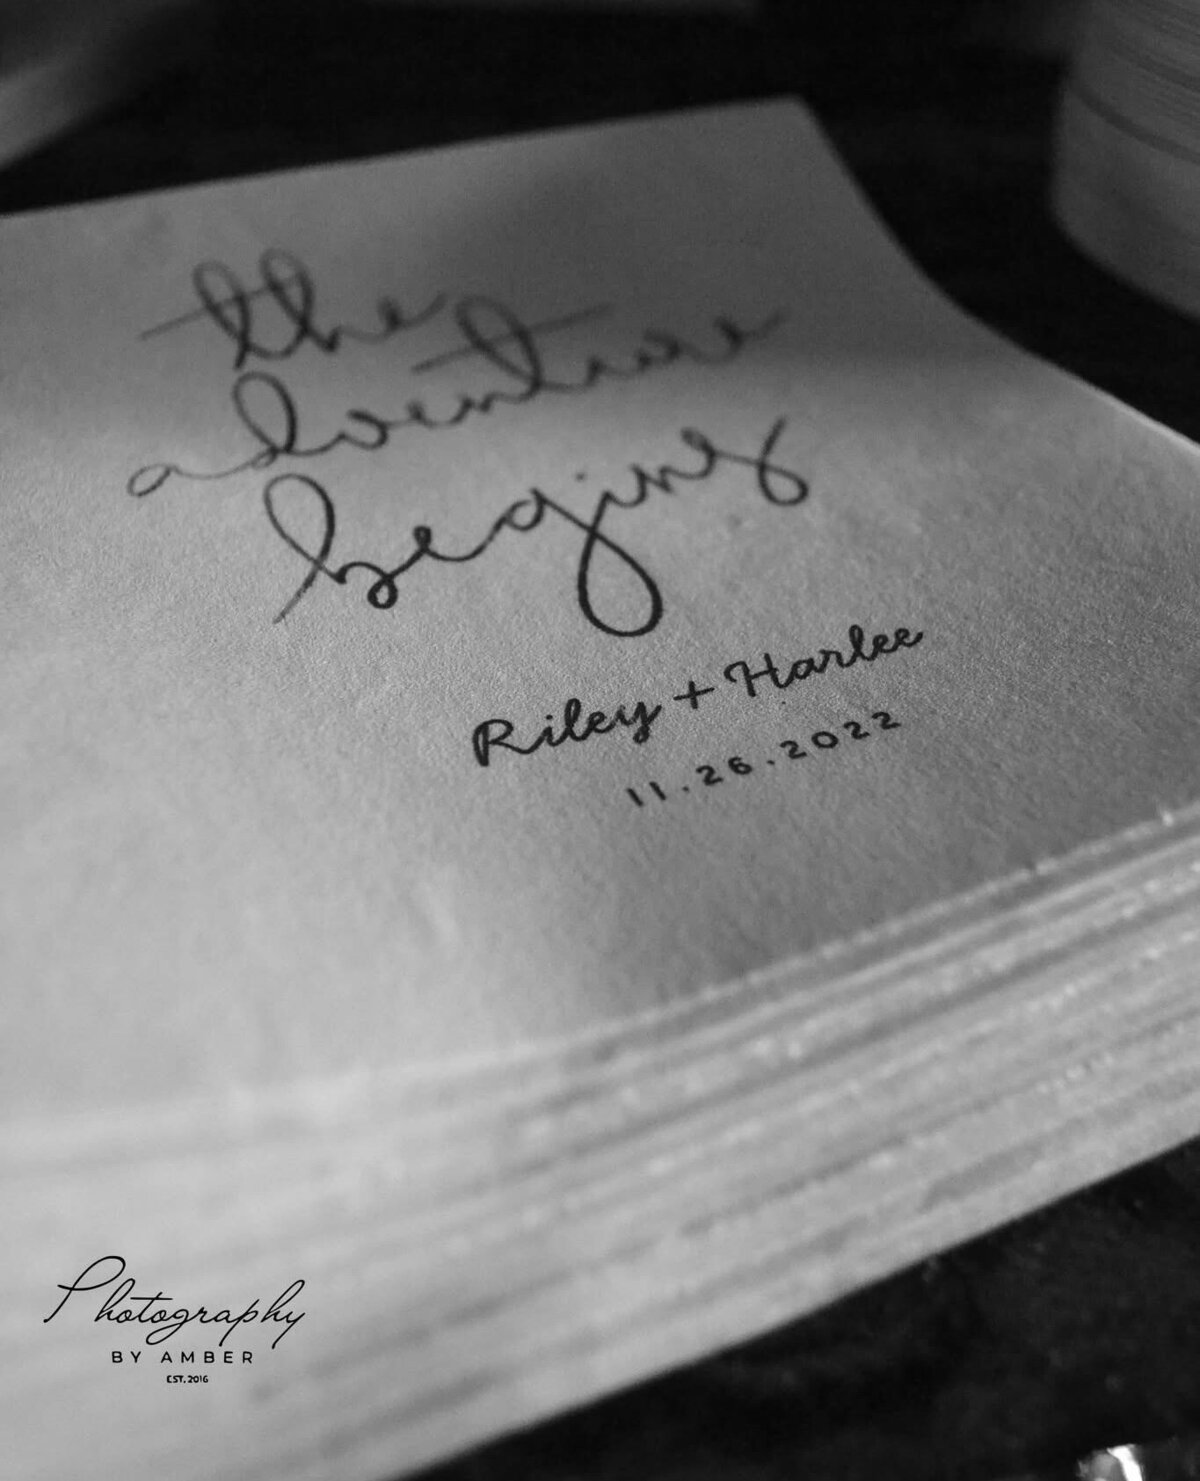 the
adventure
begins
Riley + Harlee
11.26.2022
Photography
BY AMBER
EST.2016